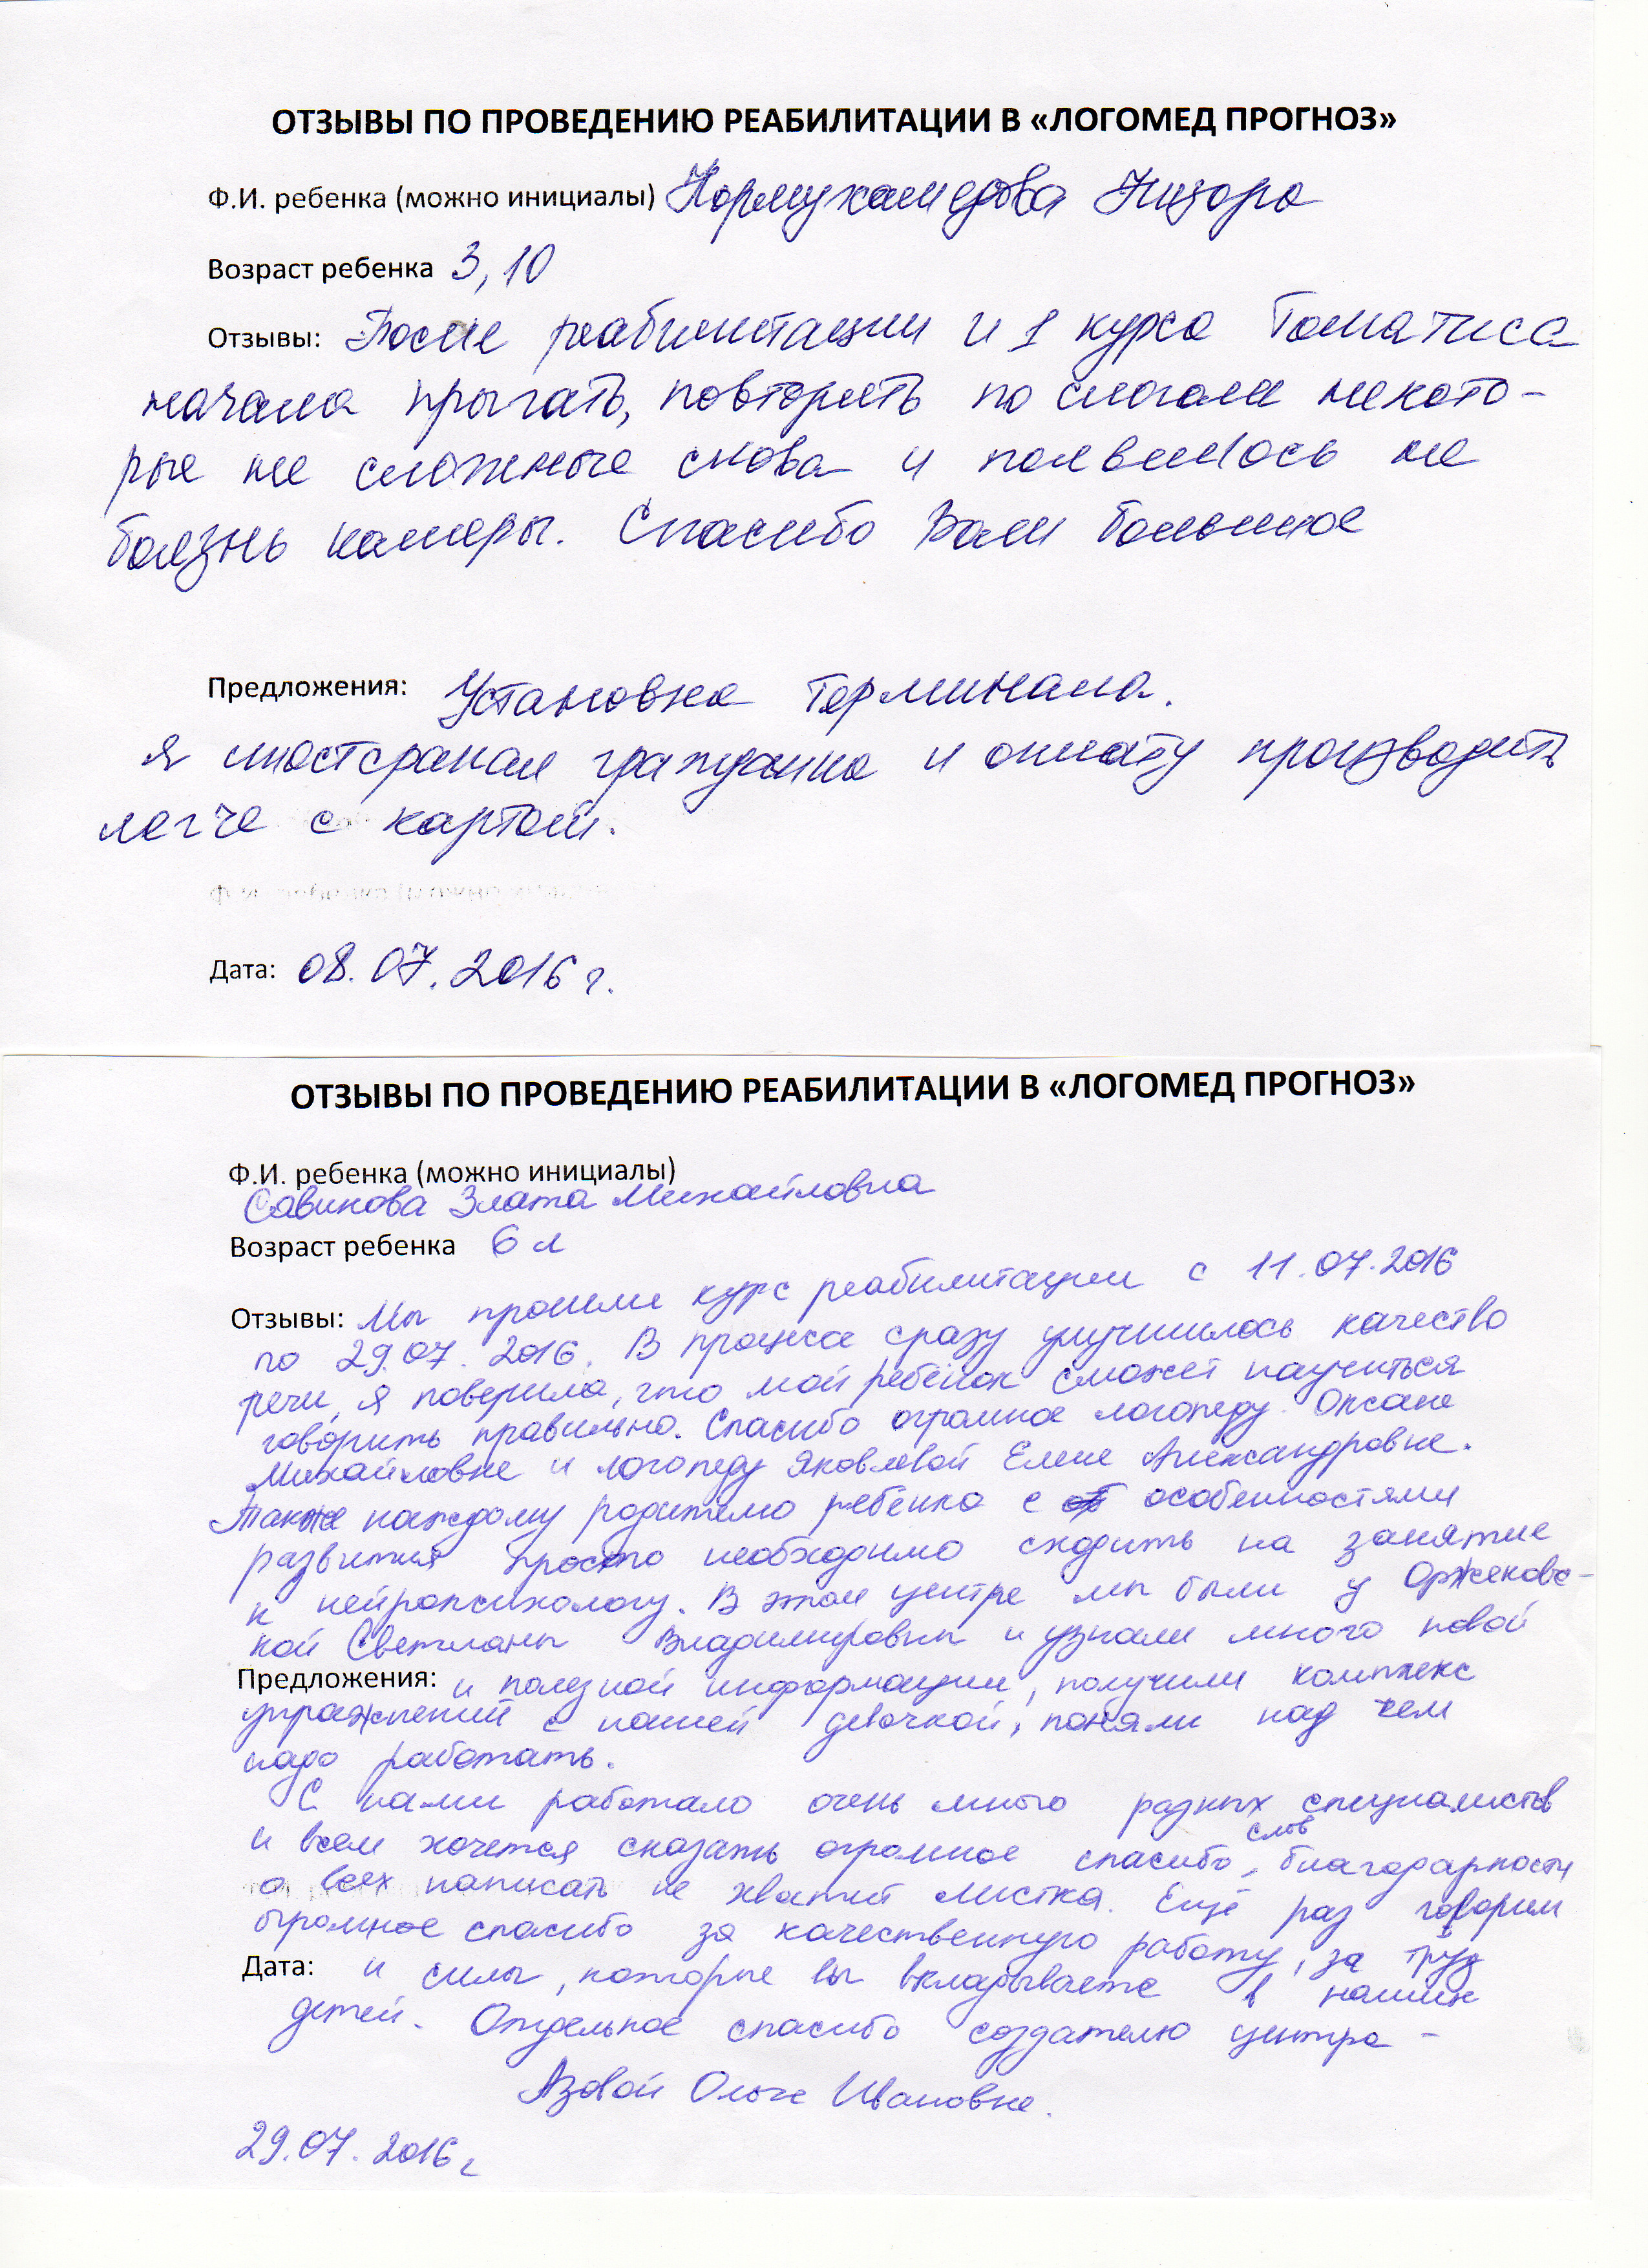 ОТЗЫВЫ ПО ПРОВЕДЕНИЮ РЕАБИЛИТАЦИИ В «ЛОГОМЕД ПРОГНОЗ»
Ф.И. ребенка (можно инициалы) Нормухамедова Нигора
Возраст ребенка 3,10
Отзывы: После реабилитации и 1 курса Томатиса
начала прыгать, повторять по слогам некото-
рые не сложные слова и появилось не
боязнь камеры. Спасибо Вам большое
Предложения: Установка терминала.
я иностраная гражданка и оплату производить
легче с картой.
Дата: 08.07.2016 г.
ОТЗЫВЫ ПО ПРОВЕДЕНИЮ РЕАБИЛИТАЦИИ В «ЛОГОМЕД ПРОГНОЗ»
Ф.И. ребенка (можно инициалы)
Савинова Злата Михайловна
Возраст ребенка 6 л
Отзывы: Мы прошли курс реабилитации с 11.07.2016
по 29.07.2016. В процессе сразу улучшилось качество
речи, я поверила, что мой ребёнок сможет научиться
говорить правильно. Спасибо огромное логопеду Оксане
Михайловне и логопеду Яковлевой Елене Александровне.
Также каждому родителю ребёнка с особенностями
развития просто необходимо сходить на занятие
к нейропсихологу. В этом центре мы были у Оржековс-
кой Светланы Владимировны и узнали много новой
Предложения: и полезной информации, получили комплекс
упражнений с нашей девочкой, поняли над чем
надо работать.
С нами работало очень много разных специалистов
и всем хочется сказать огромное спасибо, слов благодарности
о всех написать не хватит листка. Ещё раз говорим
огромное спасибо за качественную работу, за труд
Дата: и силы, которые вы вкладываете в наших
детей. Отдельное спасибо создателю центра -
Азовой Ольге Ивановне.
29.07.2016 г